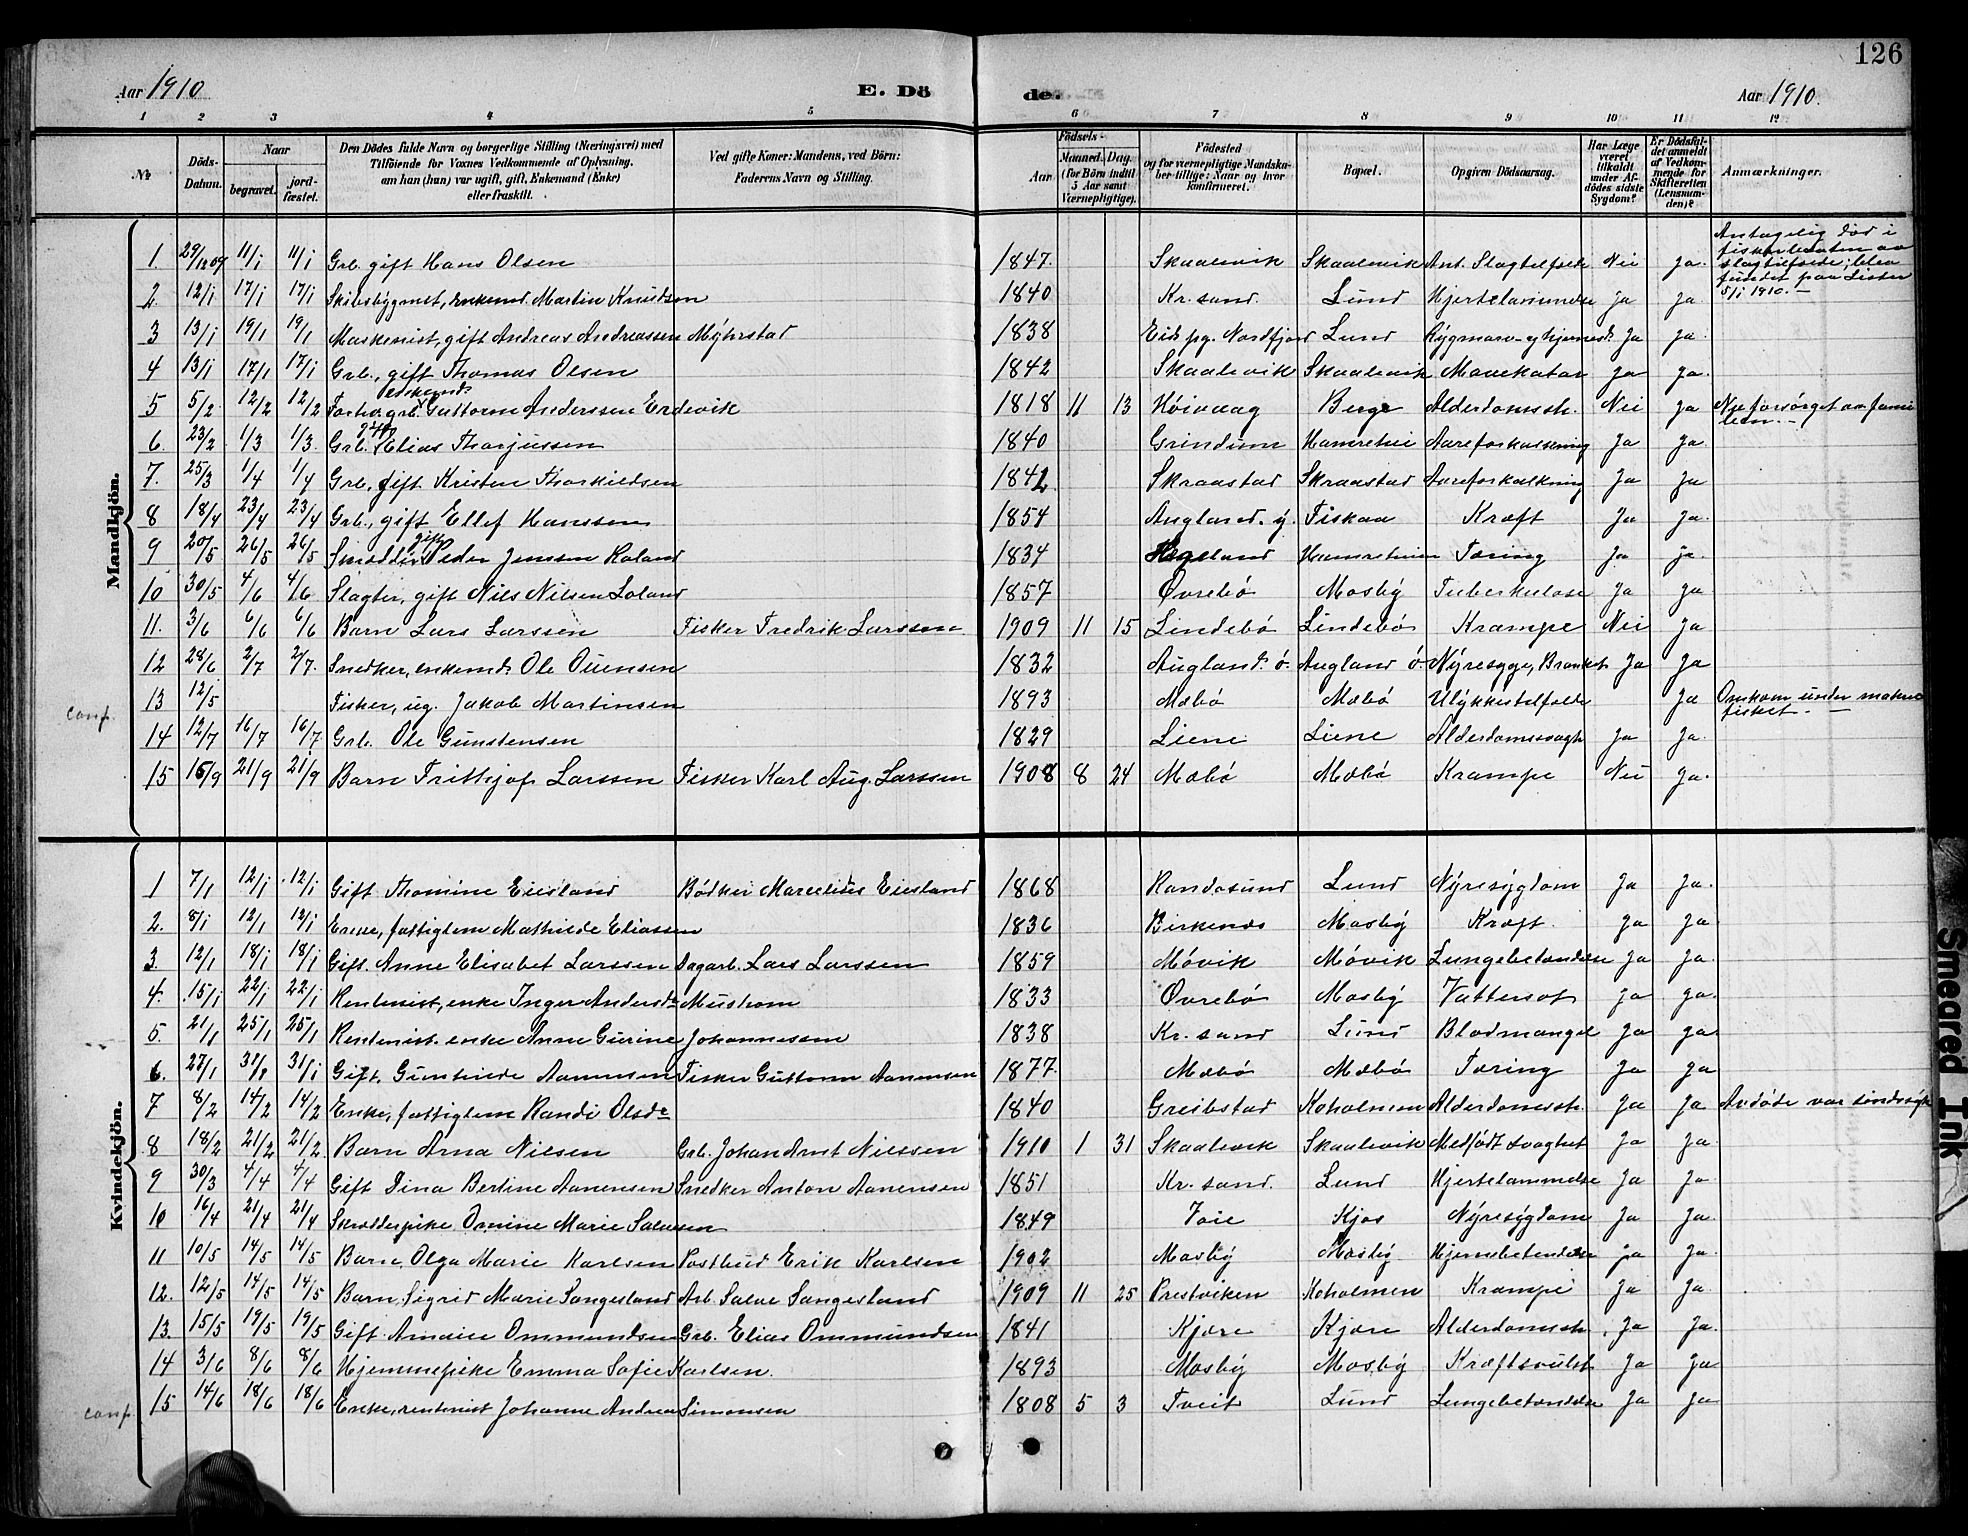 126
Aar 1910 E. Dö de. Aar 1910.
1 2 3 4 5 6 7 8 9 10 11 12
№ Döds-Datum. Naar begravet. jord-fæstet. Den Dödes fulde Navn og borgerlige Stilling (Næringsvei) med Tilföiende for Voxnes Vedkommende af Oplysning, om han (hun) var ugift, gift, Enkemand (Enke) eller fraskilt. Ved gifte Koner: Mandens, ved Börn: Faderens Navn og Stilling. Födsels- Aar Maaned. Dag. (for Börn indtil 5 Aar samt Værnepligtige). Födested og for værnepligtige Mandskaber tillige: Naar og hvor konfirmeret. Bopæl. Opgiven Dödsaarsag. Har Læge været tilkaldt under Afdödes sidste Sygdom? Er Dödsfaldet anmeldt af Vedkommende for Skifteretten (Lensmanden)? Anmærkninger.
Mandkjön.
1. 29/12 09 11/1 11/1 Grb. gift Hans Olsen 1847. Skaalevik Skaalevik Ant. Slagtilfælde Nei Ja. Antagelig død i fiskerbaaten av slagtilfælde; blev fundet paa Lister 5/1 1910. —
2. 12/1 17/1 17/1 Skibsbygmst, enkemd. Martin Knudsen 1840 Kr. sand. Lund Hjertelammelse Ja Ja.
3 13/1 19/1 19/1 Maskinist, gift Andreas Andreassen Myhrstad 1838 Eid pg. Nordfjord Lund Rygmarv- og hjernesd. Ja Ja.
4 13/1 17/1 17/1 Grb., gift Thomas Olsen 1842 Skaalevik Skaalevik Mavekatar Ja Ja.
5 5/2 12/2 12/2 Forhv. grb. enkemd. Guttorm Anderssen Erdevik 1818 11 13 Høivaag Berge Alderdomssk. Nei Ja Nu forsørget av familien. —
6 23/2 1/3 1/3. Grb. gift Elias Thorjussen 1840 Grindum Hamretun Aareforkalkning Ja Ja.
7. 25/3 1/4 1/4 Grb., gift Kristen Thorkildsen 1842. Skraastad Skraastad Aareforkalkning Ja Ja
8 18/4 23/4 23/4 Grb., gift Ellef Hanssen 1854 Augland. y. Fiskaa Kræft Ja Ja.
9 20/5 26/5 26/5 Skrædder gift Peder Jenssen Roland 1834 Hægeland Hamretunen Tæring Ja Ja
10 30/5 4/6 4/6 Slagter, gift Nils Nilsen Loland 1857 Øvrebø Mosby Tuberkulose Ja Ja
11. 3/6 6/6 6/6 Barn Lars Larssen Fisker Fredrik Larssen 1909 11 15 Lindebø Lindebø Krampe Nei Ja
12 28/6 2/7 2/7. Snedker, enkemd. Ole Ouensen 1832 Augland. ø. Augland ø. Nyresyge, Bronkit. Ja Ja
conf. 13 12/5 Fisker, ug. Jakob Martinsen 1893 Mæbø Mæbø Ulykkestilfælde Ja Omkom under makrelfisket. —
14 12/7 16/7 16/7 Grb. Ole Gunstensen 1829 Liene Liene Alderdomssvagh Ja Ja.
15 15/9 21/9 21/9 Barn Frithjof Larssen Fisker Karl Aug. Larssen 1908 8 24 Mæbø Mæbø Krampe Nei Ja.
Kvindekjön.
1 7/1 12/1 12/1 Gift Thomine Eiesland Bødker Marcelius Eiesland 1868 Randøsund Lund Nyresygdom Ja Ja.
2. 8/1 12/1 12/1 Enke, fattiglem Mathilde Eliassen 1836 Birkenæs Mosby Kræft. Ja Ja
3. 12/1 18/1 18/1 Gift. Anne Elisabet Larssen Dagarb. Lars Larssen 1859 Møvik Møvik Lungebetændelse Ja Ja.
4. 15/1 22/1 22/1 Rentenist, enke Inger Andersdr Mustrom 1833 Øvrebø Mosby Vattersot Ja Ja.
5. 21/1 25/1 25/1 Rentenist. enke Anne Gurine Johannessen 1838 Kr. sand Lund Blodmangel Ja Ja
6. 27/1 31/1 31/1 Gift. Gunhilde Aanensen Fisker Guttorm Aanensen 1877. Mæbø Mæbø Tæring Ja Ja
7 8/2 14/2 14/2 Enke, fattiglem Randi Olsdr 1840 Greibstad Koholmen Alderdomssk. Ja Ja Avdøde var sindssyk
8 18/2 21/2 21/2 Barn Arna Nilsen Grb. Johan Arnt Nilssen 1910 1 31 Skaalevik Skaalevik Medfødt svaghet Ja Ja
9 30/3 4/4 4/4 Gift Dina Bertine Aanensen Snedker Anton Aanensen 1851 Kr. sand. Lund Hjertelammelse Ja Ja.
10 16/4 21/4 21/4 Skrædderpike Omine Marie Salvesen 1849 Voie Kjos Nyresygdom Ja Ja.
11 10/5 14/5 14/5 Barn, Olga Marie Karlsen Postbud Erik Karlsen 1902 Mosby Mosby Hjernebetændelse Ja Ja.
12. 12/5 14/5 14/5 Barn, Sigrid Marie Sangesland Arb. Salve Sangesland 1909 11 25 Prestviken Koholmen Krampe Ja Ja.
13. 15/5 19/5 19/5 Gift Amalie Ommundsen Grb. Elias Ommundsen 1841 Kjære Kjære Alderdomssk. Ja Ja.
14 3/6 8/6 8/6 Hjemmepike Emma Sofie Karlsen. 1893 Mosby Mosby Kræftsvulst Ja Ja
conf. 15 14/6 18/6 18/6 Enke, rentenist Johanne Andrea Simonsen 1808 5 3 Tveit Lund Lungebetændelse Ja Ja
Smeared Ink